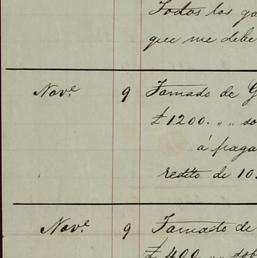 Todos los ga
que me debe
Nov.e 9 Tomado de G
£1200. " " so
á paga
redito de 10.
Nov.e 9 Tomado de
£400. " " sob